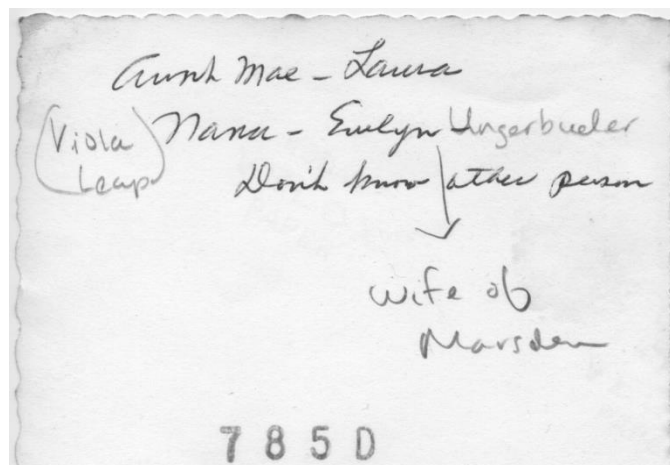 Aunt Mae - Laura
(Viola Leap) Nana - Evelyn Ungerbueler
Don't know other person
Wife of
Marsden
785D